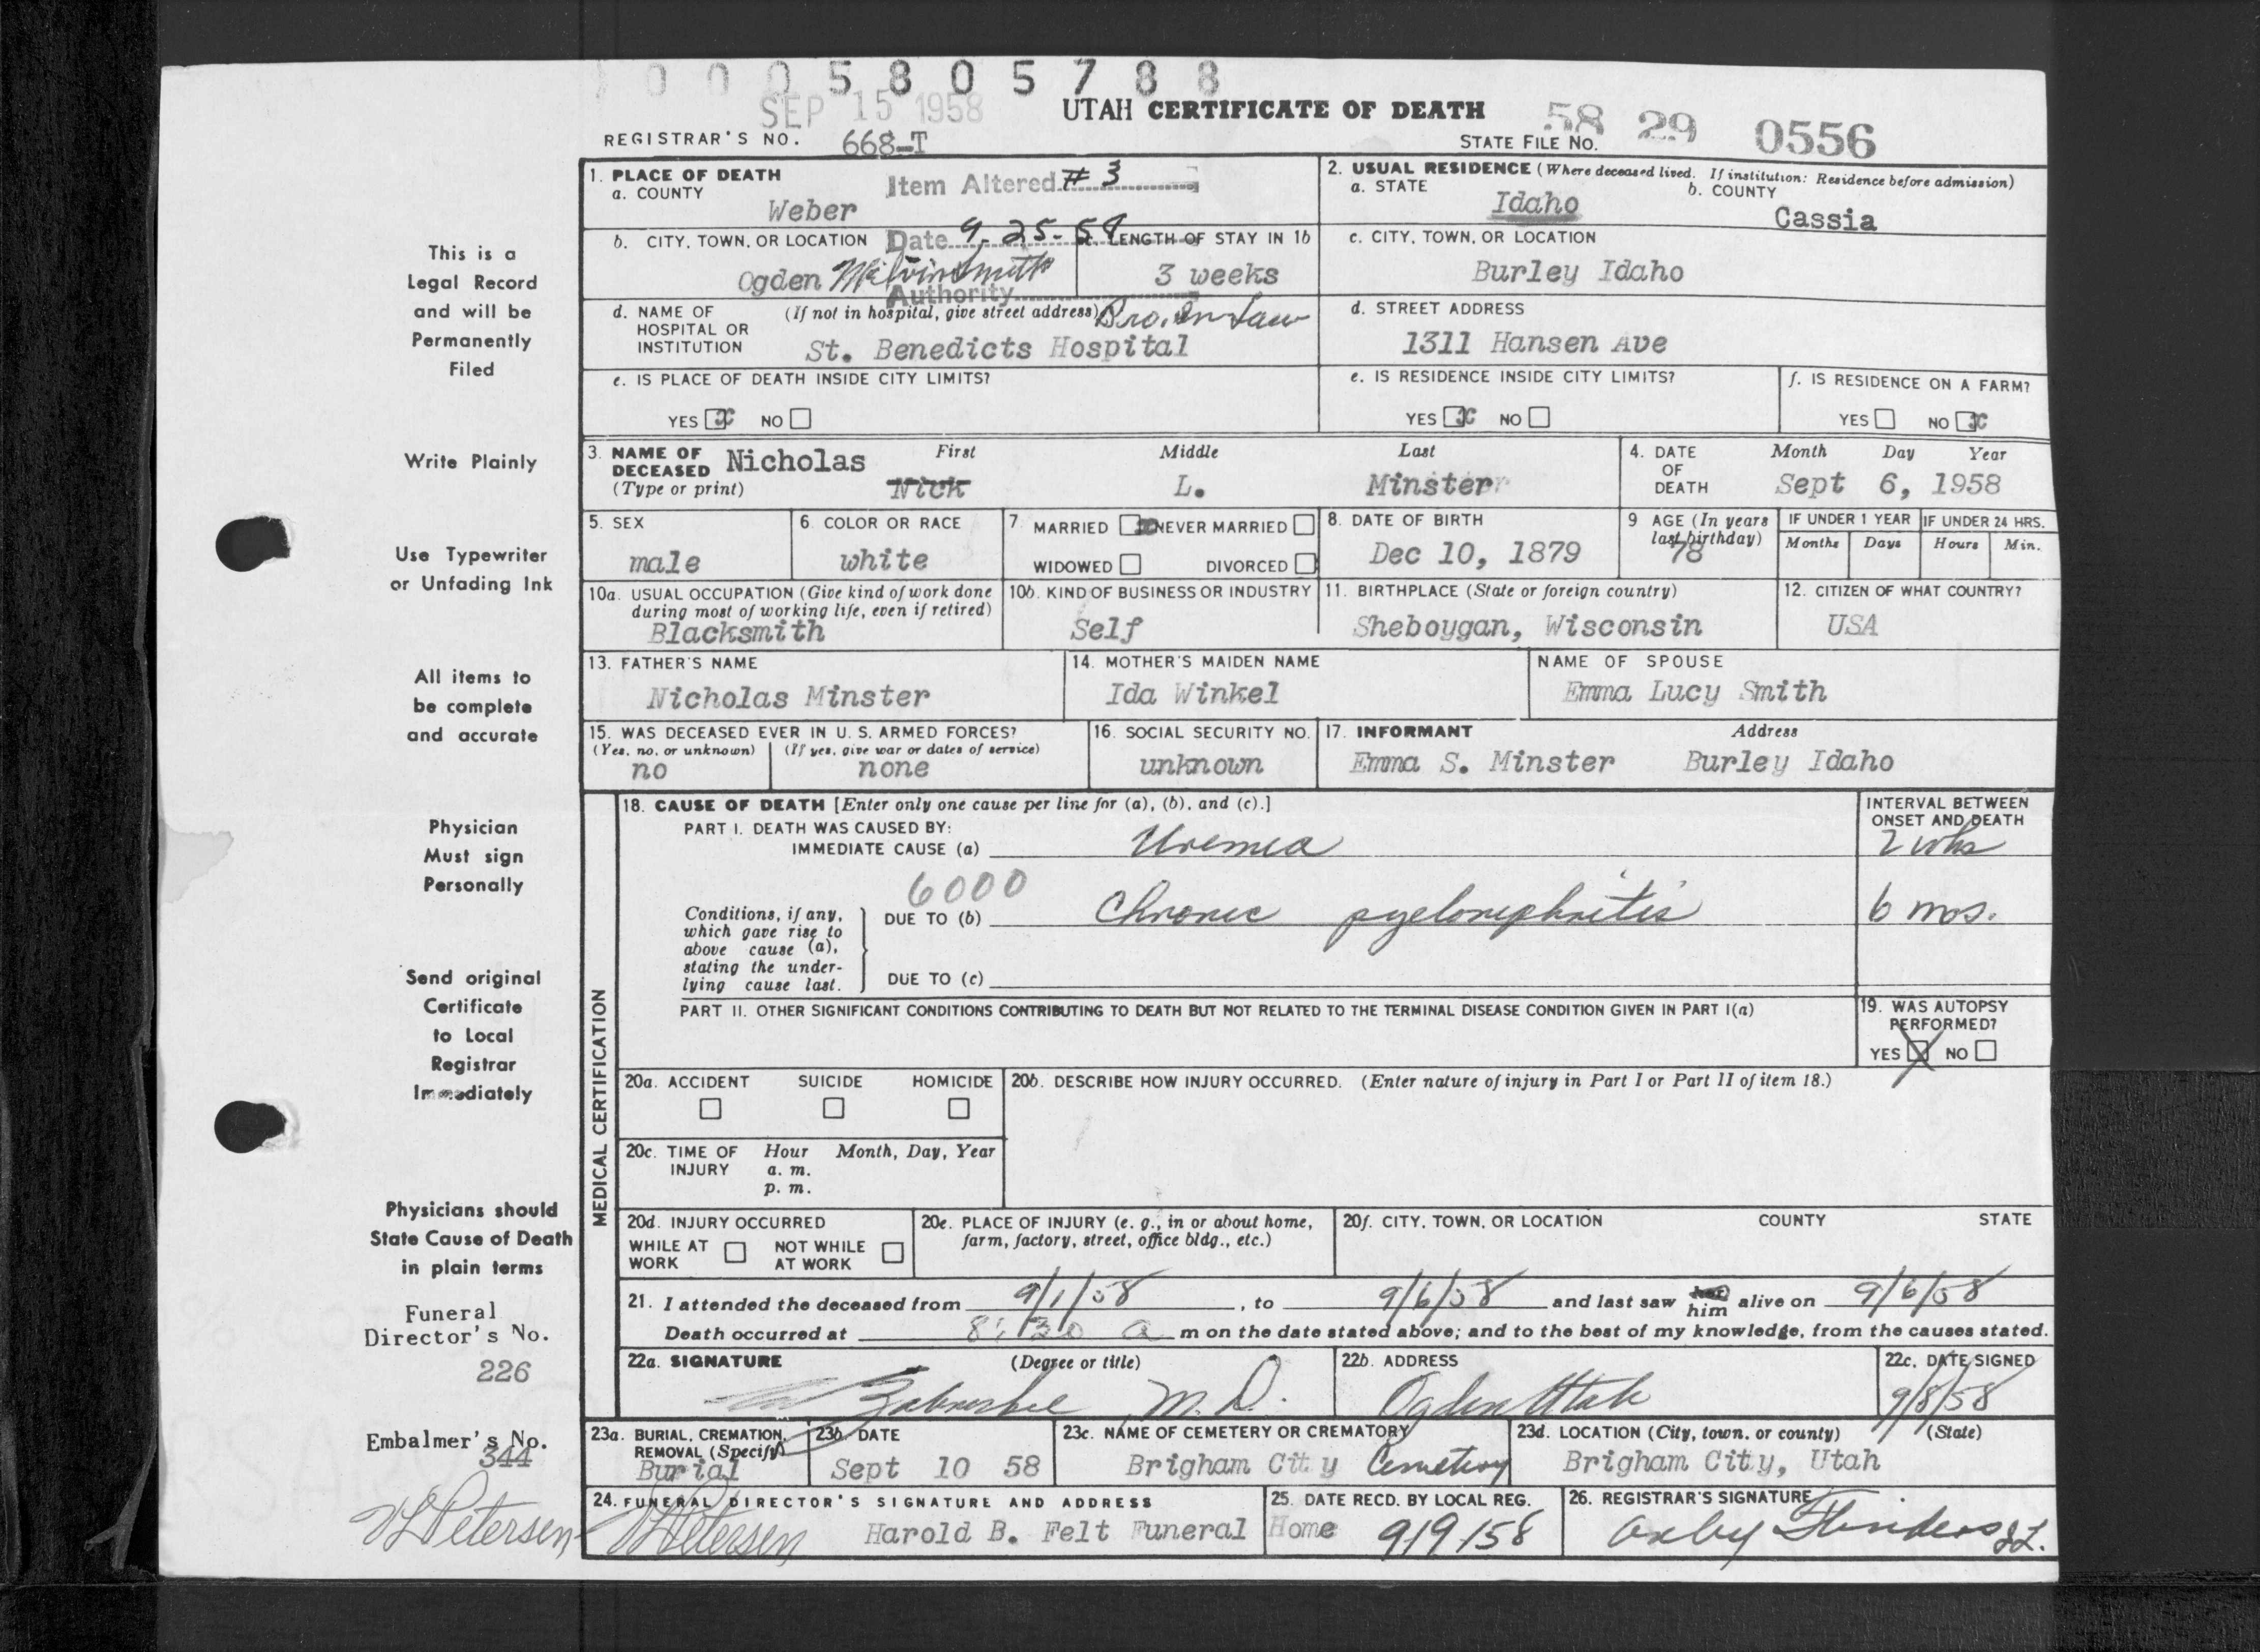 0005805788
SEP 15 1958
UTAH CERTIFICATE OF DEATH
58 29 0556
REGISTRAR'S NO. 668-T
STATE FILE NO.
1. PLACE OF DEATH
a. COUNTY
Weber
Item Altered # 3
2. USUAL RESIDENCE (Where deceased lived. If institution: Residence before admission)
a. STATE
Idaho
b. COUNTY
Cassia
b. CITY, TOWN, OR LOCATION
Ogden
Date 9-25-58
Melvin Smith
Authority
Bro. In Law
LENGTH OF STAY IN 1b
3 weeks
c. CITY, TOWN, OR LOCATION
Burley Idaho
d. NAME OF HOSPITAL OR INSTITUTION
(If not in hospital, give street address)
St. Benedicts Hospital
d. STREET ADDRESS
1311 Hansen Ave
e. IS PLACE OF DEATH INSIDE CITY LIMITS?
YES x NO
e. IS RESIDENCE INSIDE CITY LIMITS?
YES x NO
f. IS RESIDENCE ON A FARM?
YES NO x
3. NAME OF DECEASED
(Type or print)
First Middle Last
Nicholas
Nick L. Minster
4. DATE OF DEATH
Month Day Year
Sept 6, 1958
5. SEX
male
6. COLOR OR RACE
white
7. MARRIED x NEVER MARRIED
WIDOWED DIVORCED
8. DATE OF BIRTH
Dec 10, 1879
9 AGE (In years last birthday)
78
IF UNDER 1 YEAR
Months Days
IF UNDER 24 HRS.
Hours Min.
10a. USUAL OCCUPATION (Give kind of work done during most of working life, even if retired)
Blacksmith
10b. KIND OF BUSINESS OR INDUSTRY
Self
11. BIRTHPLACE (State or foreign country)
Sheboygan, Wisconsin
12. CITIZEN OF WHAT COUNTRY?
USA
13. FATHER'S NAME
Nicholas Minster
14. MOTHER'S MAIDEN NAME
Ida Winkel
NAME OF SPOUSE
Emma Lucy Smith
15. WAS DECEASED EVER IN U. S. ARMED FORCES?
(Yes, no, or unknown) (If yes, give war or dates of service)
no none
16. SOCIAL SECURITY NO.
unknown
17. INFORMANT Address
Emma S. Minster Burley Idaho
MEDICAL CERTIFICATION
18. CAUSE OF DEATH [Enter only one cause per line for (a), (b), and (c).]
PART I. DEATH WAS CAUSED BY:
IMMEDIATE CAUSE (a) Uremia
INTERVAL BETWEEN ONSET AND DEATH
2 wks
6000
Conditions, if any, which gave rise to above cause (a), stating the underlying cause last.
DUE TO (b) Chronic pyelonephritis
6 mos.
DUE TO (c)
PART II. OTHER SIGNIFICANT CONDITIONS CONTRIBUTING TO DEATH BUT NOT RELATED TO THE TERMINAL DISEASE CONDITION GIVEN IN PART I(a)
19. WAS AUTOPSY PERFORMED?
YES X NO
20a. ACCIDENT SUICIDE HOMICIDE
20b. DESCRIBE HOW INJURY OCCURRED. (Enter nature of injury in Part I or Part II of item 18.)
20c. TIME OF INJURY
Hour Month, Day, Year
a. m.
p. m.
20d. INJURY OCCURRED
WHILE AT WORK NOT WHILE AT WORK
20e. PLACE OF INJURY (e. g., in or about home, farm, factory, street, office bldg., etc.)
20f. CITY, TOWN, OR LOCATION COUNTY STATE
21. I attended the deceased from 9/1/58, to 9/6/58 and last saw her him alive on 9/6/58
Death occurred at 8:30 a m on the date stated above; and to the best of my knowledge, from the causes stated.
22a. SIGNATURE (Degree or title)
M. D.
22b. ADDRESS
Ogden Utah
22c. DATE SIGNED
9/8/58
23a. BURIAL, CREMATION, REMOVAL (Specify)
Burial
23b. DATE
Sept 10 58
23c. NAME OF CEMETERY OR CREMATORY
Brigham City Cemetery
23d. LOCATION (City, town, or county) (State)
Brigham City, Utah
24. FUNERAL DIRECTOR'S SIGNATURE AND ADDRESS
Petersen Harold B. Felt Funeral Home
25. DATE RECD. BY LOCAL REG.
9/9/58
26. REGISTRAR'S SIGNATURE
This is a
Legal Record
and will be
Permanently
Filed
Write Plainly
Use Typewriter
or Unfading Ink
All items to
be complete
and accurate
Physician
Must sign
Personally
Send original
Certificate
to Local
Registrar
Immediately
Physicians should
State Cause of Death
in plain terms
Funeral
Director's No.
226
Embalmer's No.
344
Petersen